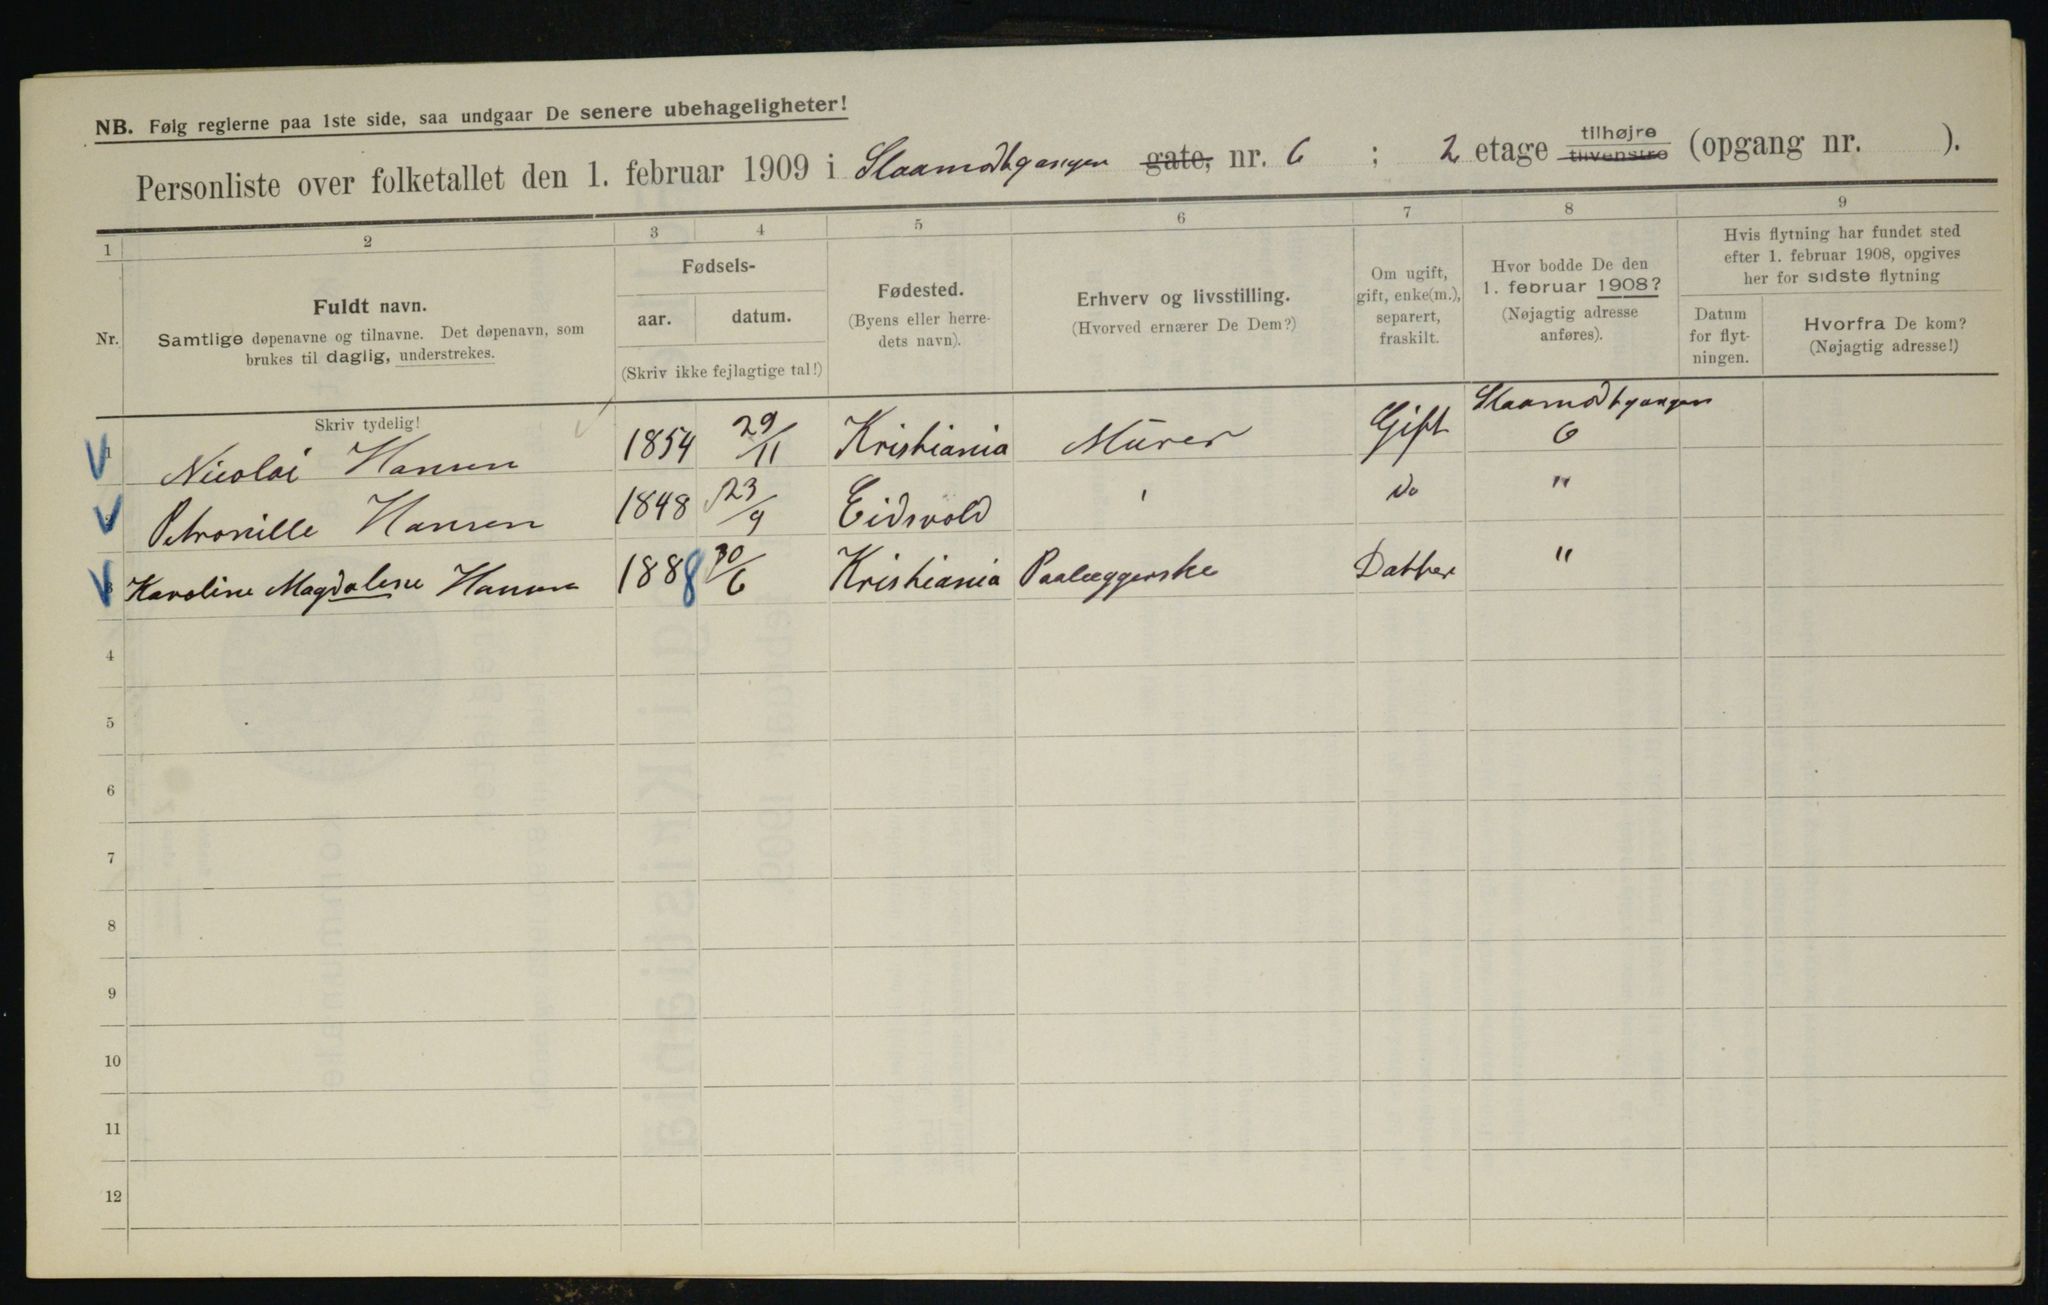 NB. Følg reglerne paa 1ste side, saa undgaar De senere ubehageligheter!
Personliste over folketallet den 1. februar 1909 i Slaamodtgangen gate, nr. 6 ; 2 etage tilhøjre tilvenstre (opgang nr. ).
1 2 3 4 5 6 7 8 9
Nr.
Fuldt navn.
Samtlige døpenavne og tilnavne. Det døpenavn, som
brukes til daglig, understrekes.
Fødsels-
aar. datum.
(Skriv ikke fejlagtige tal!)
Fødested.
(Byens eller herre-
dets navn).
Erhverv og livsstilling.
(Hvorved ernærer De Dem?)
Om ugift,
gift, enke(m.),
separert,
fraskilt.
Hvor bodde De den
1. februar 1908?
(Nøjagtig adresse
anføres).
Hvis flytning har fundet sted
efter 1. februar 1908, opgives
her for sidste flytning
Datum
for flyt-
ningen.
Hvorfra De kom?
(Nøjagtig adresse!)
Skriv tydelig!
1 Nicolai Hansen 1854 29/11 Kristiania Murer Gift Slaamodtgangen 6
2 Petronille Hansen 1848 23/9 Eidsvold do "
3 Karoline Magdalene Hansen 1888 30/6 Kristiania Paalæggerske Datter "
4
5
6
7
8
9
10
11
12